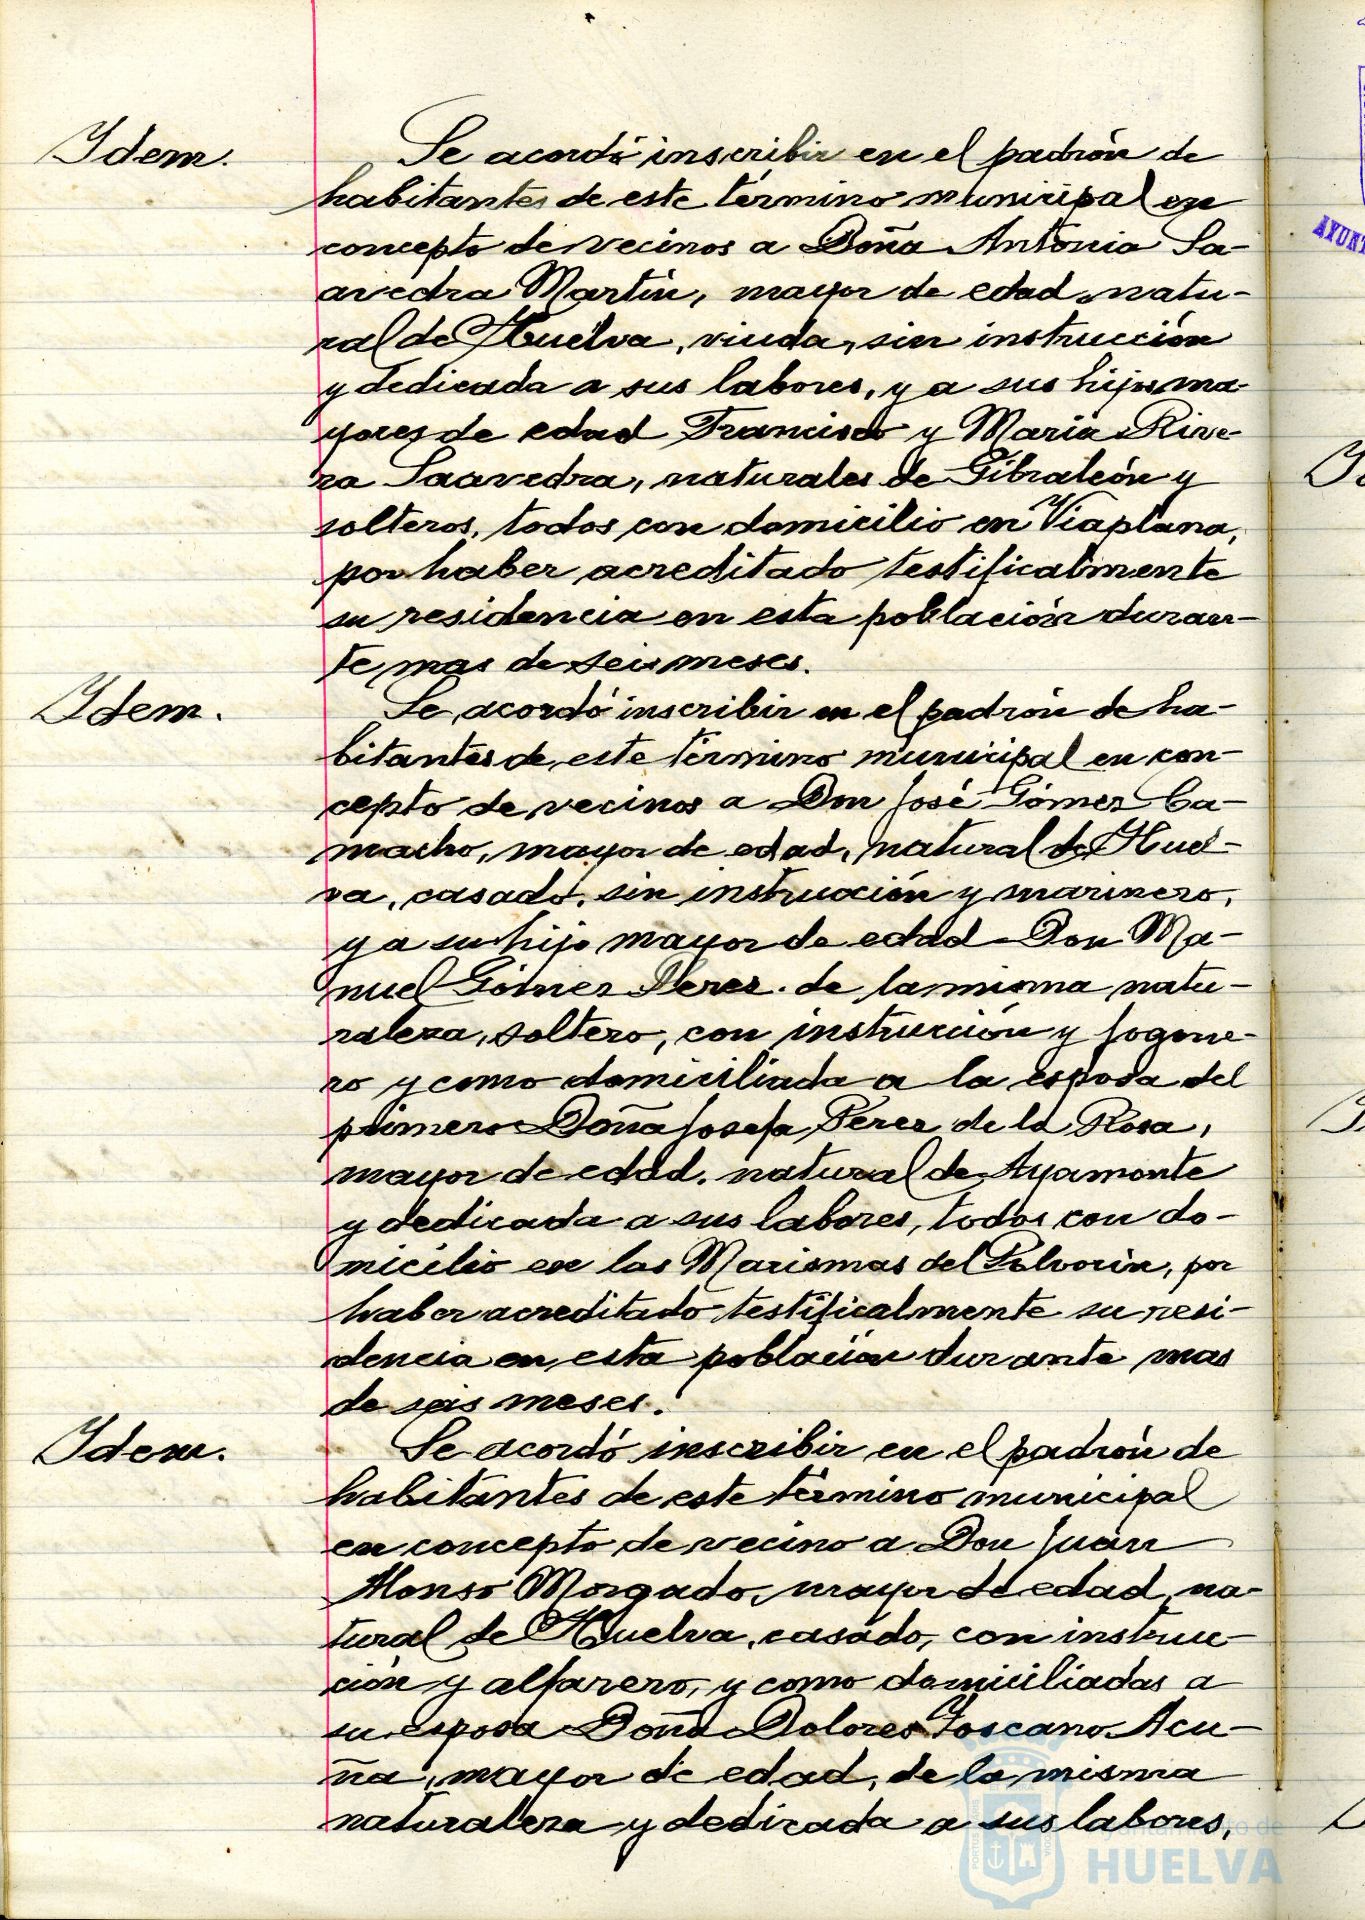 Idem.
Se acordó inscribir en el padrón de
habitantes de este término municipal en
concepto de vecinos a Doña Antonia Sa-
avedra Martín, mayor de edad, natu-
ral de Huelva, viuda, sin instrucción
y dedicada a sus labores, y a sus hijos ma-
yores de edad Francisco y María Rive-
ra Saavedra, naturales de Gibraleón y
solteros, todos con domicilio en Viaplana,
por haber acreditado testificalmente
su residencia en esta población duran-
te mas de seis meses.
Idem.
Se acordó inscribir en el padrón de ha-
bitantes de este término municipal en con-
cepto de vecinos a Don José Gómez Ca-
macho, mayor de edad, natural de Huel-
va, casado, sin instrucción y marinero,
y a su hijo mayor de edad Don Ma-
nuel Gómez Perez. de la misma natu-
raleza, soltero, con instrucción y fogone-
ro y como domiciliada a la esposa del
primero Doña Josefa Perez de la Rosa,
mayor de edad, natural de Ayamonte
y dedicada a sus labores, todos con do-
micilio en las Marismas del Polvorin, por
haber acreditado testificalmente su resi-
dencia en esta población durante mas
de seis meses.
Idem.
Se acordó inscribir en el padrón de
habitantes de este término municipal
en concepto de vecino a Don Juan
Alonso Morgado, mayor de edad, na-
tural de Huelva, casado, con instruc-
ción y alfarero, y como domiciliadas a
su esposa Doña Dolores Toscano Acu-
ña, mayor de edad, de la misma
naturaleza y dedicada a sus labores,
Ayuntamiento de
HUELVA